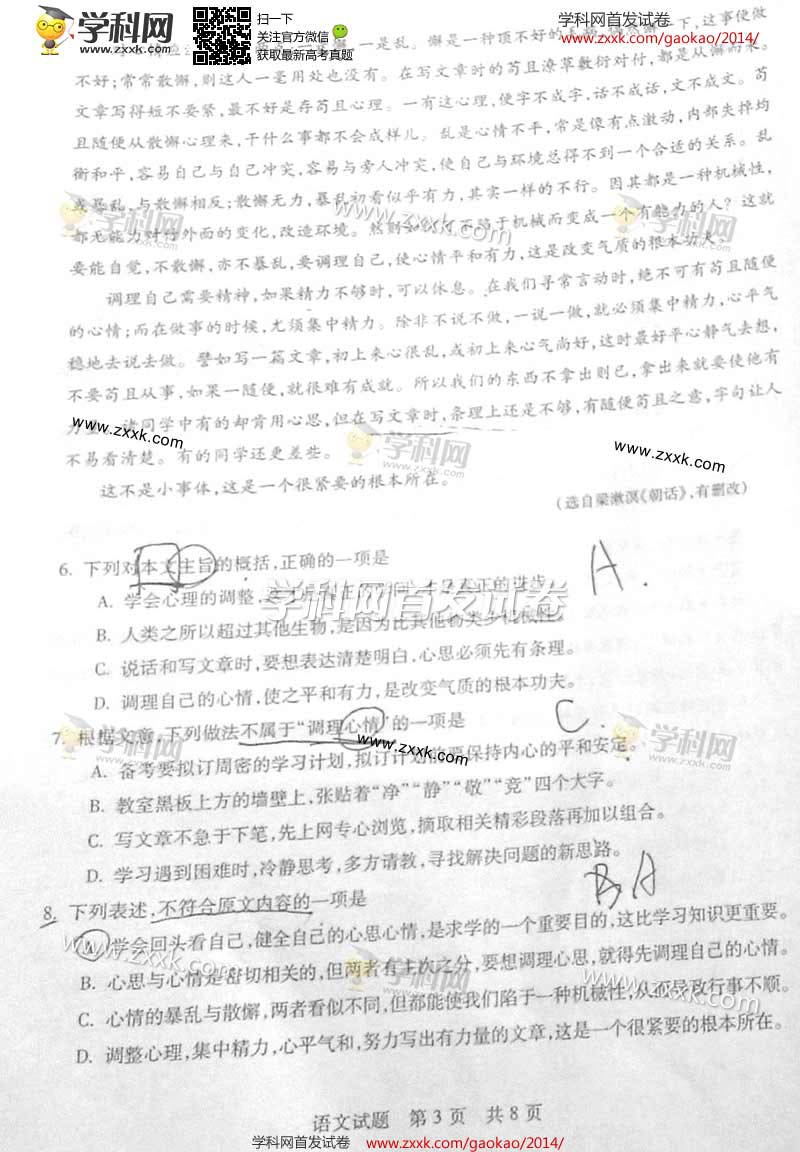 学科网
www.zxxk.com
扫一下
关注官方微信
获取最新高考真题
学科网首发试卷
www.zxxk.com/gaokao/2014/
一是懈,一是乱。懈是一种顶不好的
下,这事便做
不好;常常散懈,则这人一毫用处也没有。在写文章时的苟且潦草敷衍对付,都是从懈而来。
文章写得短不要紧,最不好是存苟且心理。一有这心理,便字不成字,话不成话,文不成文。苟
且随便从散懈心理来,干什么事都不会成样儿。乱是心情不平,常是像有点激动,内部失掉均
衡和平,容易自己与自己冲突,容易与旁人冲突,使自己与环境总得不到一个合适的关系。乱
或暴乱,与散懈相反;散懈无力,暴乱初看似乎有力,其实一样的不行。因其都是一种机械性,
都无能力对付外面的变化,改造环境。然则如何可不陷于机械而变成一个有能力的人?这就
要能自觉,不散懈,亦不暴乱,要调理自己,使心情平和有力,这是改变气质的根本功夫。
调理自己需要精神,如果精力不够时,可以休息。在我们寻常言动时,绝不可有苟且随便
的心情;而在做事的时候,尤须集中精力。除非不说不做,一说一做,就必须集中精力,心平气
稳地去说去做。譬如写一篇文章,初上来心很乱,或初上来心气尚好,这时最好平心静气去想,
不要苟且从事,如果一随便,就很难有成就。所以我们的东西不拿出则已,拿出来就要使他有
力量。诸同学中有的却肯用心思,但在写文章时,条理上还是不够,有随便苟且之意,字句让人
不易看清楚。有的同学还更差些。
这不是小事体,这是一个很紧要的根本所在。
(选自梁漱溟《朝话》,有删改)
6. 下列对本文主旨的概括,正确的一项是
A.
A. 学会心理的调整,
正的进步。
B. 人类之所以超过其他生物,是因为比其他物类少机械性。
C. 说话和写文章时,要想表达清楚明白,心思必须先有条理。
D. 调理自己的心情,使之平和有力,是改变气质的根本功夫。
7. 根据文章,下列做法不属于“调理心情”的一项是
C.
A. 备考要拟订周密的学习计划,拟订计划前要保持内心的平和安定。
B. 教室黑板上方的墙壁上,张贴着“净”“静”“敬”“竞”四个大字。
C. 写文章不急于下笔,先上网专心浏览,摘取相关精彩段落再加以组合。
D. 学习遇到困难时,冷静思考,多方请教,寻找解决问题的新思路。
BA
8. 下列表述,不符合原文内容的一项是
A. 学会回头看自己,健全自己的心思心情,是求学的一个重要目的,这比学习知识更重要。
B. 心思与心情是密切相关的,但两者有主次之分,要想调理心思,就得先调理自己的心情。
C. 心情的暴乱与散懈,两者看似不同,但都能使我们陷于一种机械性,从而导致行事不顺。
D. 调整心理,集中精力,心平气和,努力写出有力量的文章,这是一个很紧要的根本所在。
语文试题 第3页 共8页
学科网首发试卷 www.zxxk.com/gaokao/2014/